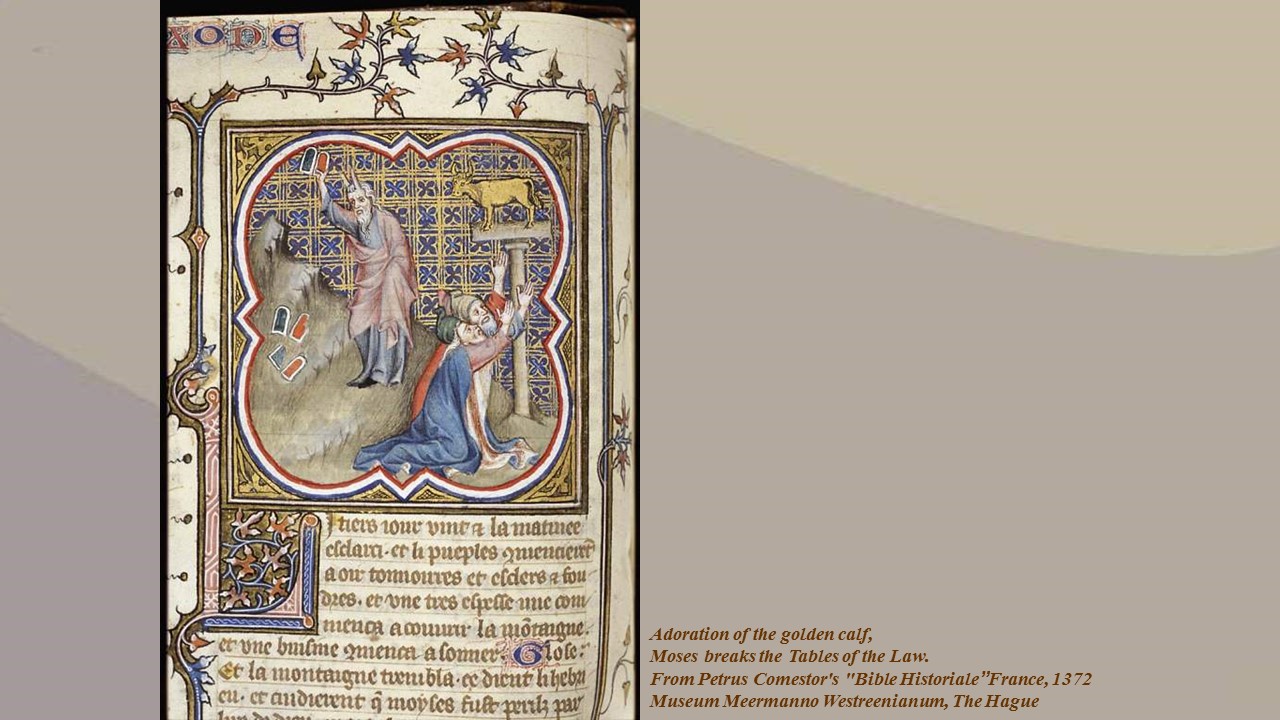 XODE
I tiers iour vint & la matinee
esclarci. et li pueples 9mencierẽt
a oir tonnoirres et esclers & fou
dres. et vne tres espesse nue com
mença a couurir la mõtaigne.
et vne buisine 9mença a sonner. Glose.
Et la montaigne trembla. ce dient li hebri
eu. et cuidierent q̃ moyses fust periz par
Adoration of the golden calf,
Moses breaks the Tables of the Law.
From Petrus Comestor's "Bible Historiale”France, 1372
Museum Meermanno Westreenianum, The Hague